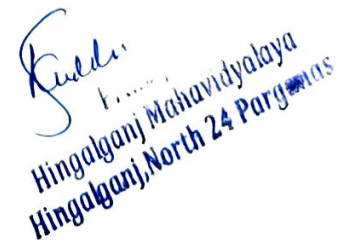 Hingalganj Mahavidyalaya
Hingalganj,North 24 Parganas